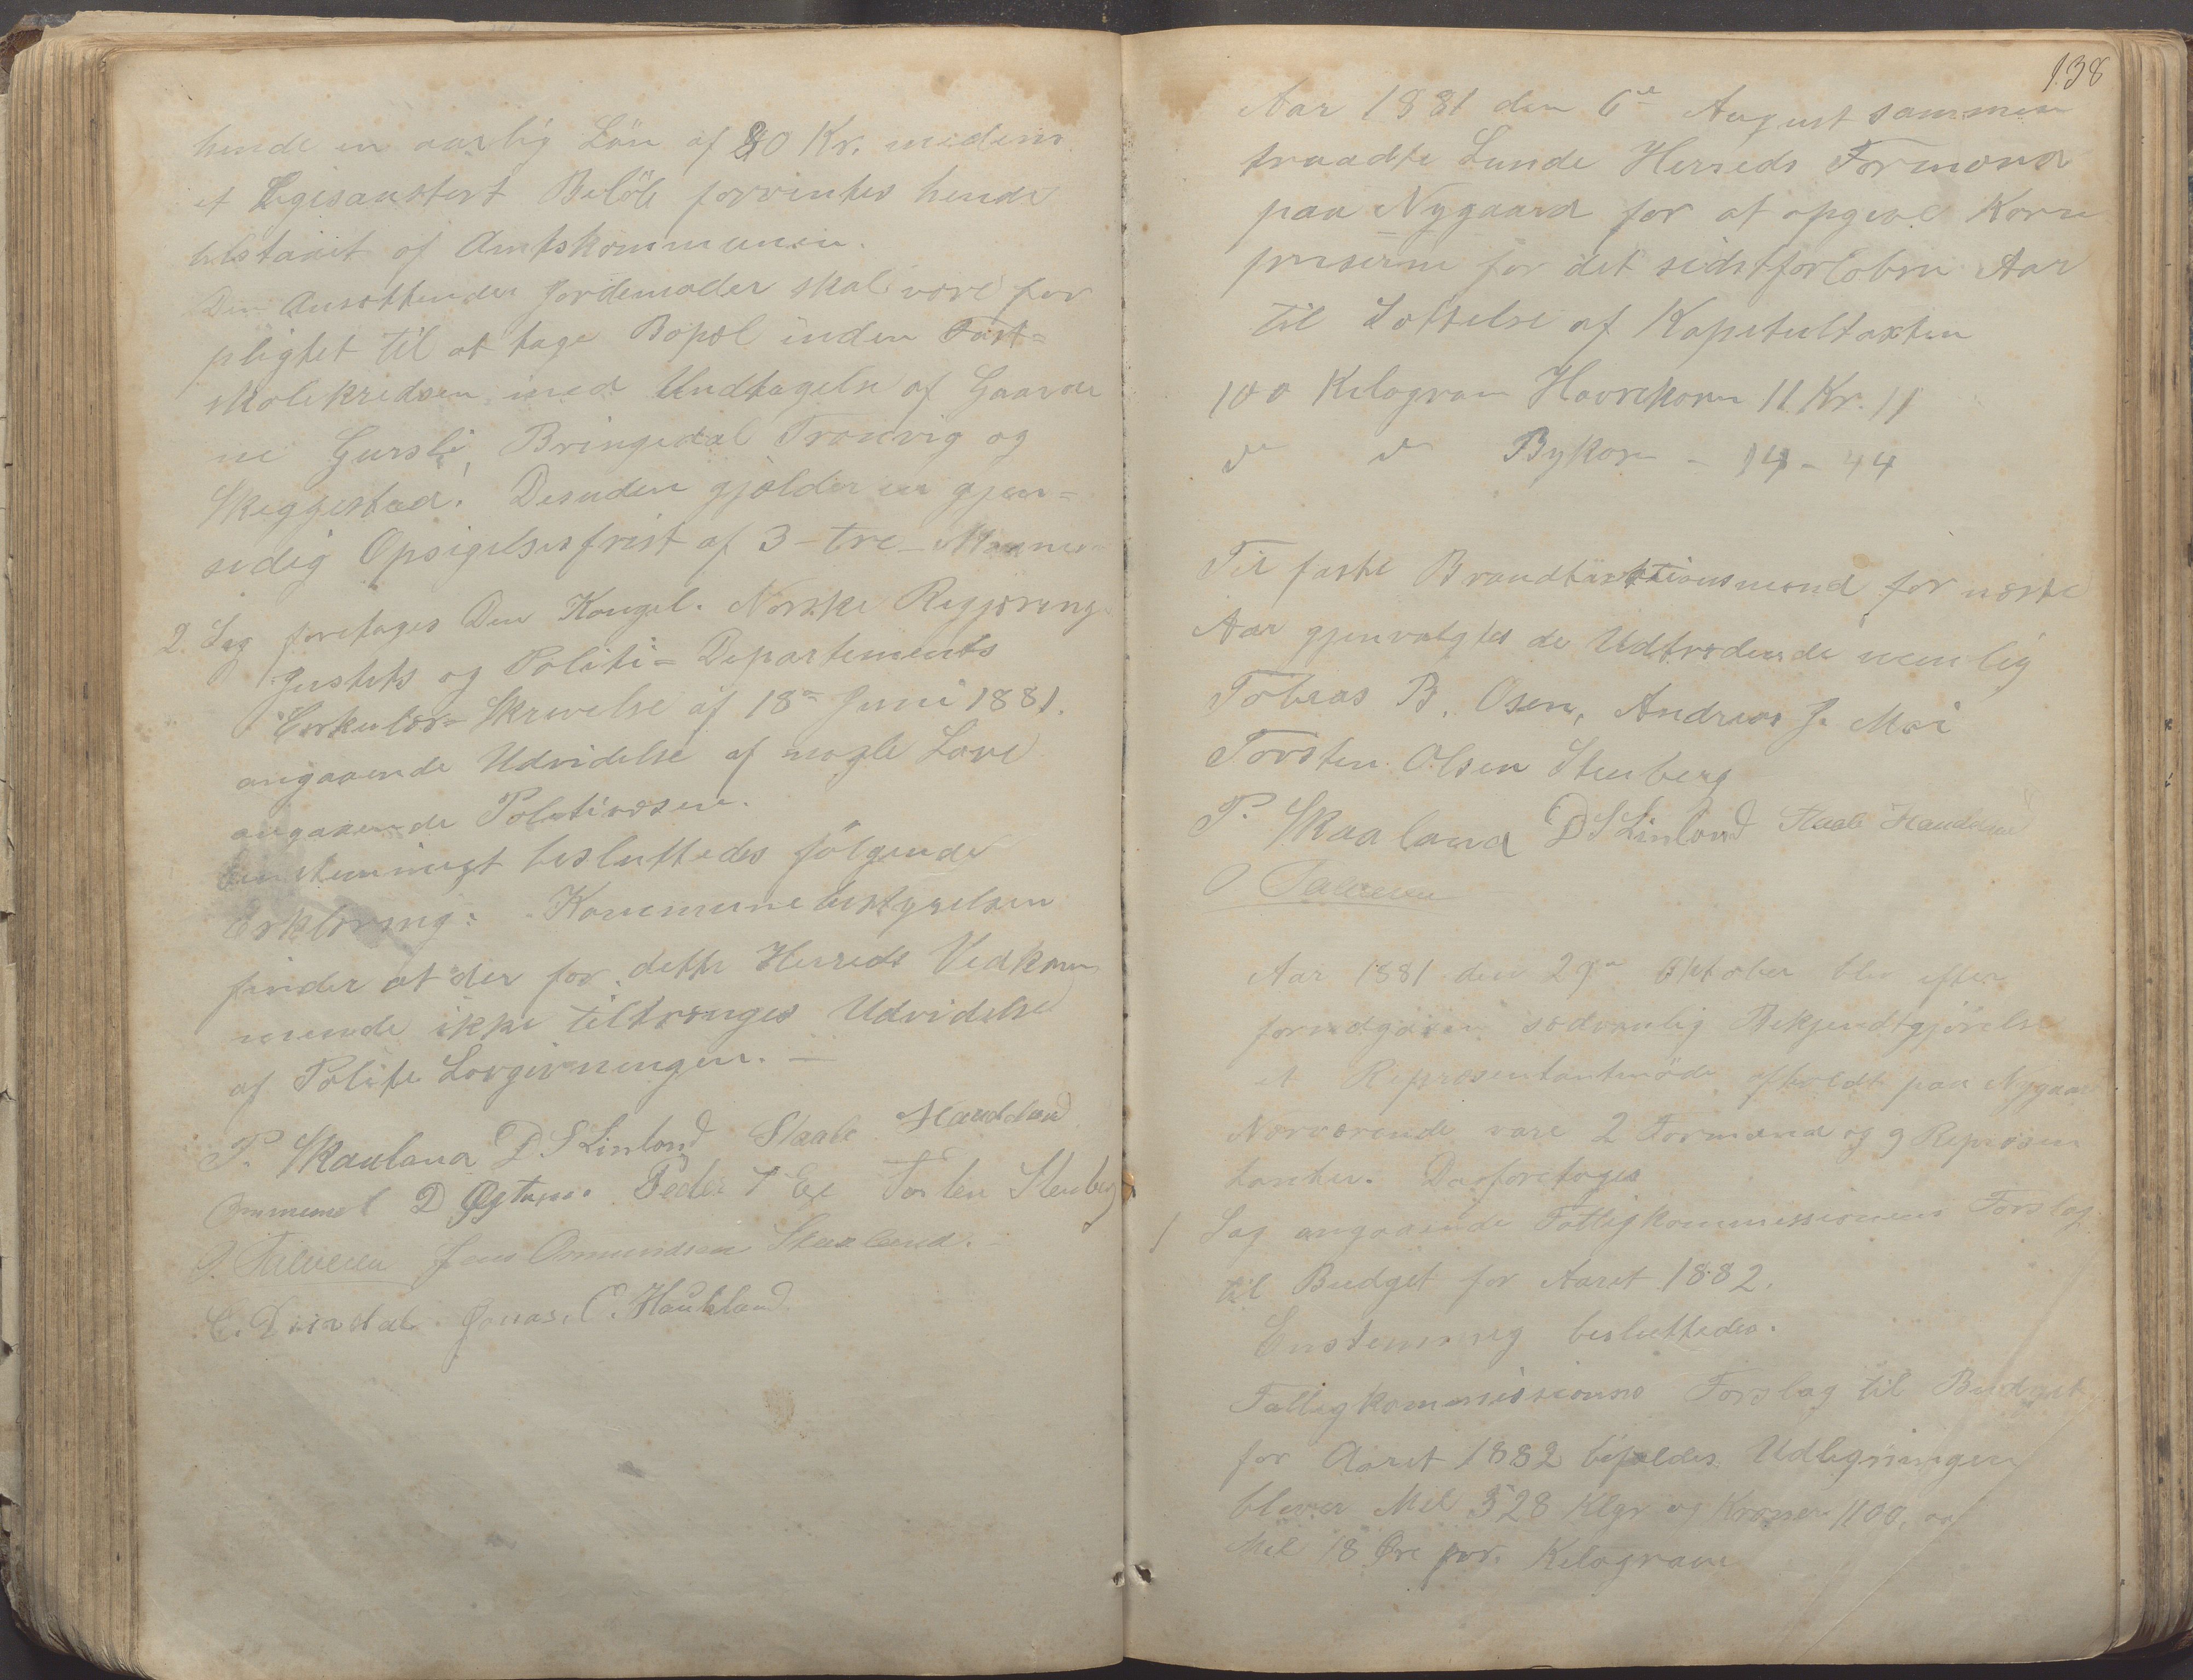 hende en aarlig Lön af 80 Kr. medens
et ligesaastort Belöb forventes hende
tilstaaet af Amtskommunen.
Den Ansættendes Jordemoder skal være for
pligtet til at tage Bopæl inden Fast=
skolekredsen med Undtagelse af Gaarde
ne Gursli, Bringedal Tronvig og
Skeggestad. Desuden gjælder en gjen=
sidig Opsigelsesfrist af 3 - tre - Maane
2. Sag foretages Den Kongel. Norske Regjerings
Justits og Politi = Departements
Cirkulær = Skrivelse af 18de Juni 1881.
angaaende Udvidelse af nogle Love
angaaende Politivæsen.
Eenstemmigt besluttedes fölgende
Erklæring: Kommunebestyrelsen
finder at der for dette Herreds Vedkom
mende ikke tiltrænges Udvidelse
af Politi Lovgivningen. —
P. Skaaland D S Linlond Staale Hauddand
Ommund D Østrem Peder T Eie Torsten Stenberg
Jens Omundsen Skaaland.
E. Dirdal Jonas. C. Haukland
138
Aar 1881 den 6te August sammen
traadte Lunde Herreds Formænd
paa Nygaard for at opgive Korn
priserne for det sidstforløbne Aar
til Sættelse af Kapiteltaxten
100 Kilogram Havrekorn 11 Kr. 11
do do Bykorn - 14 - 44
Til faste Brandtaxtationsmænd for næste
Aar gjenvalgtes de Udtrædende nemlig
Tobias B. Osen, Andreas J. Moi
Torsten Olsen Stenberg
P. Skaaland D S Linlond Staale Hauddand
Aar 1881 den 29de Oktober blev efter
forudgaaen sædvanlig Bekjendtgjörelse
et Repræsentantmöde afholdt paa Nygaar
Nærværende vare 2 Formænd og 9 Repræsen
tanter. Da foretoges
1 Sag angaaende Fattigkommissionens Forslag
til Budget for Aaret 1882.
Enstemmig besluttedes.
Fattigkommissionens Forslag til Budget
for Aaret 1882 bifaldes Udligningen
bliver Mel 528 Klgr og Kroner 1100, og
Mel 18 Øre pr. Kilogram